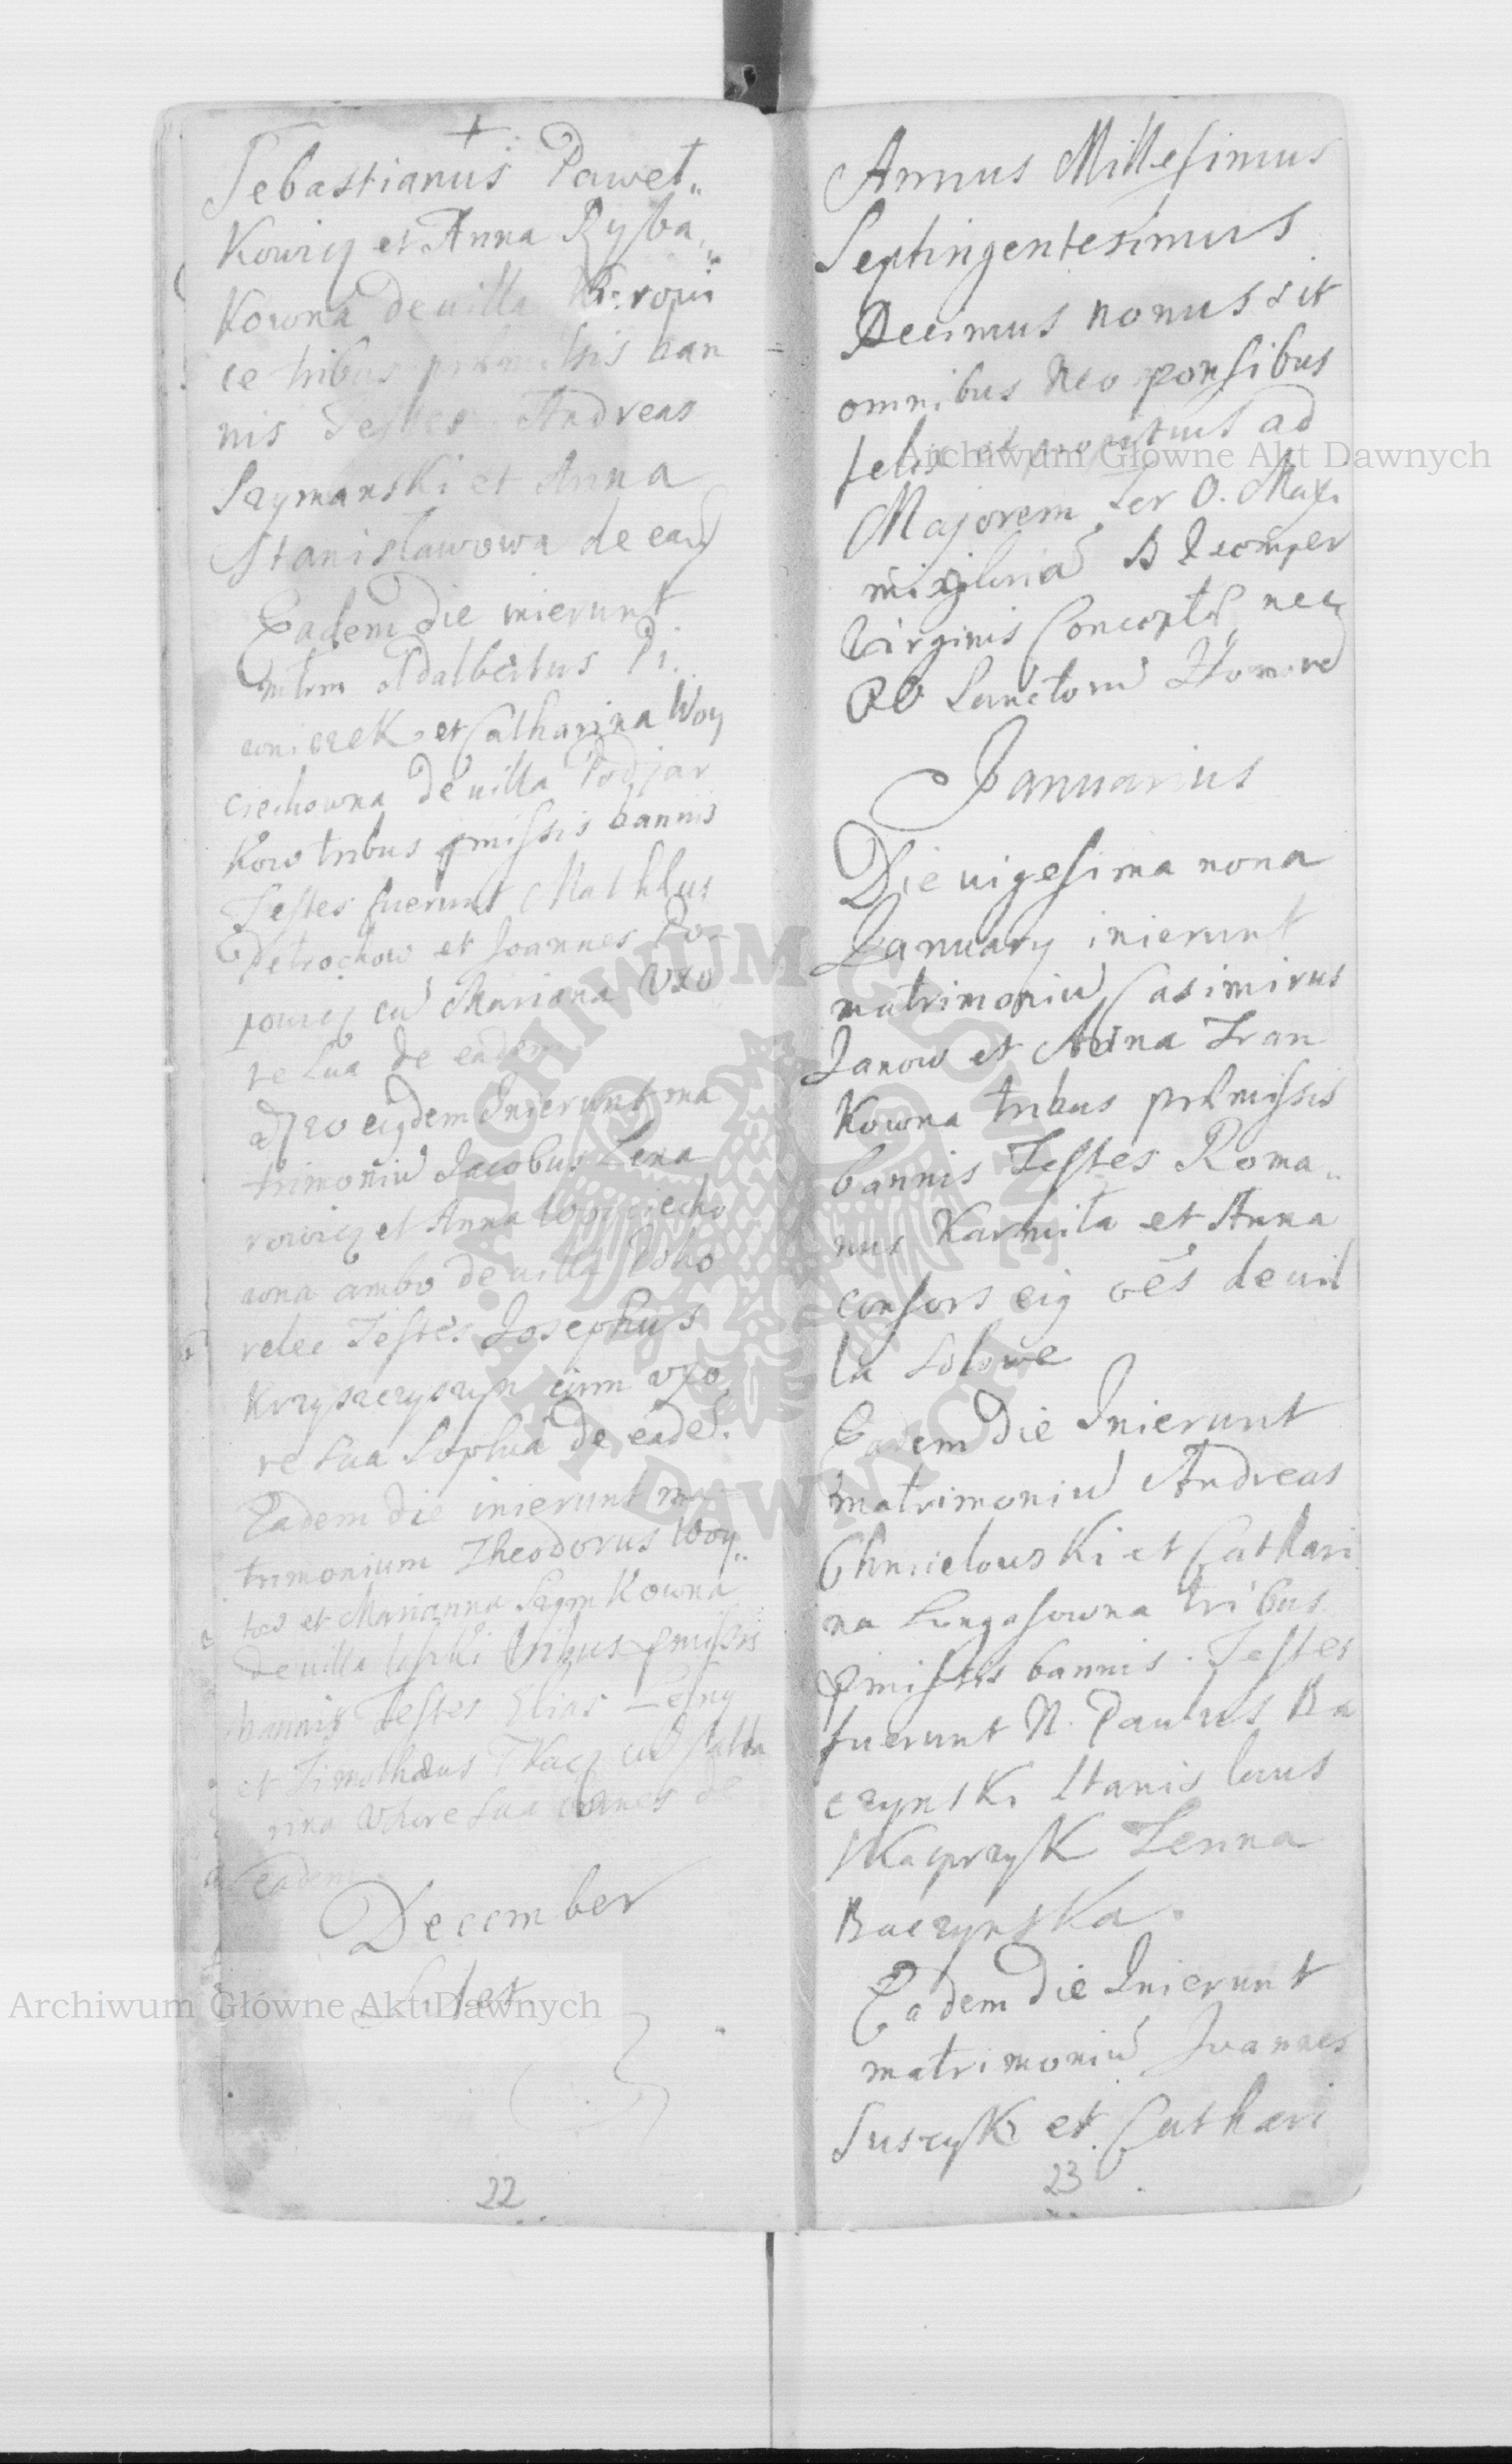 Sebastianus Paweł„
Kowicz et Anna Ryba„
Kowna de uilla Kropi
ce tribus præmissis ban
nis Testes Andreas
Szymanski et Anna
Stanisławowa de ead
Eadem die inierunt
mtrm Adalbertus Pi.
wniczek et Catharina Woy
ciechowna de uilla Podjar
Kow tribus pmissis bannis
Testes fuerunt Mathæus
Petrochow et Joannes Po-
powicz cu Mariana Uxo
re sua de eadem
eigdem Inierunt ma
trimoniu Jacobus Lena
rowicz et Anna Woyciecho
wna ambo de uilla Poho
relec Testes Josephus
Krzyszczyszyn cum uxo
re sua Sophia de eade.
Eadem die inierunt ma
trimonium Theodorus Woy„
tos et Marianna Szymkowna
de uilla tribus pmissis
bannis Testes Elias Lesny
et Timothæus Tkacz cu Catha
rina Uxore sua omnes de
eadem
December
22
Annus Millesimus
Septingentesimus
Decimus nonus sit
omnibus Neo sponsibus
felix et ad
Majorem Ter O. Maxi
mi gloria B Vsemper
Virginis Conceptæ nec
Sanctoru Honore
Januarius
Die uigesima nona
January inierunt
matrimoniu Casimirus
Janow et Anna Iran
Kowna tribus præmissis
bannis Testes Roma„
nus Karmita et Anna
consors eig oes de uil
la Solowe
Eadem die Inierunt
matrimoniu Andreas
Chmielowski et Cathari
na Lungasowna tribus
pmissis bannis. Testes
fuerunt N. Paulus Ba
czynski Stanislaus
Kacprzyk Zenna
Baczynska.
Eadem die Inierunt
matrimoniu Joannes
Suszyk et Cathari
23
Archiwum Główne Akt Dawnych
Archiwum Główne Akt Dawnych
ARCHIWUM GŁÓWNE
AKT DAWNYCH